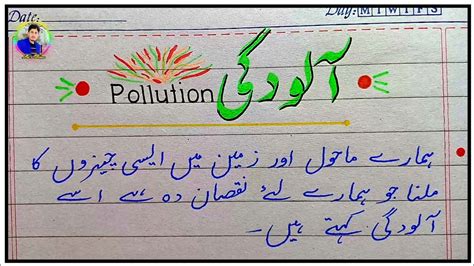 Date: Day: M T W T F S
Pollution آلودگی
ہمارے ماحول اور زمین میں ایسی چیزوں کا
ملنا جو ہمارے لئے نقصان دہ ہے اسے
آلودگی کہتے ہیں۔